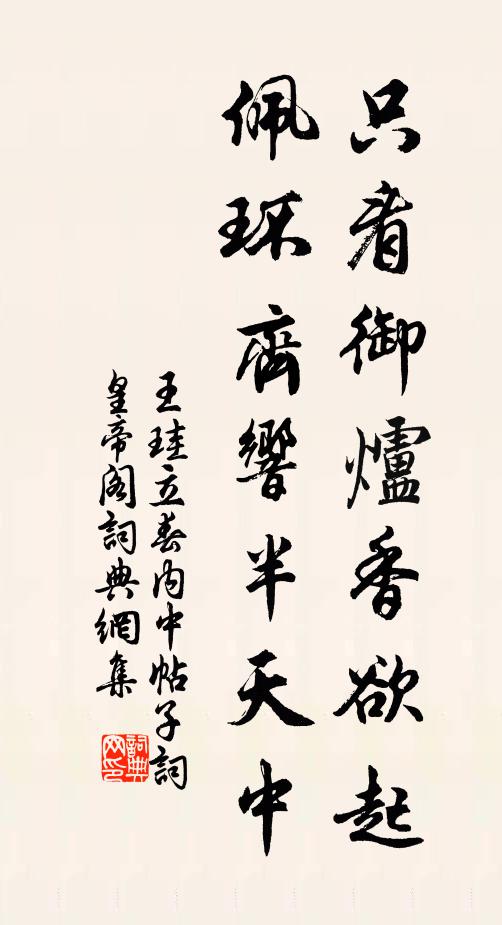 只看御爐香欲起
佩環齊響半天中
王珪立春内中帖子詞
皇帝閣詞典網集
詞典網印